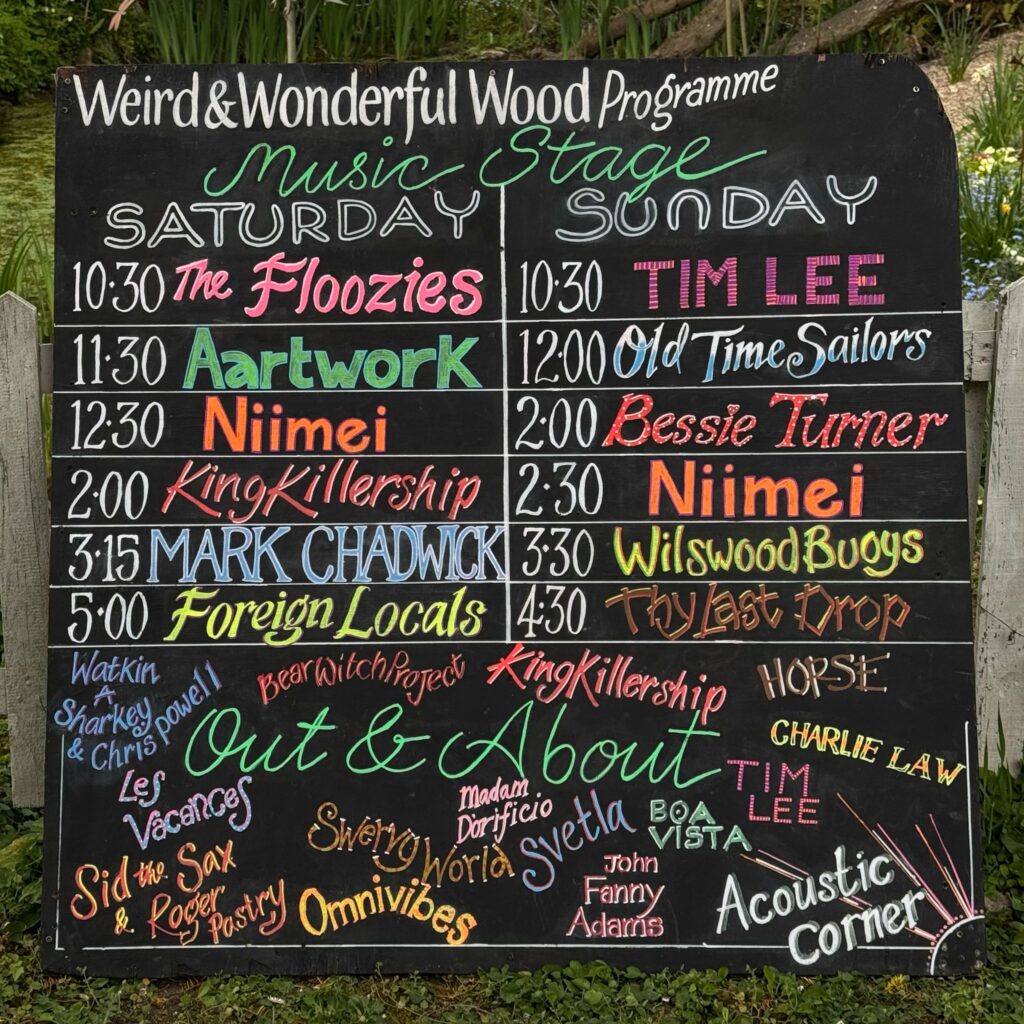 Weird & Wonderful Wood Programme
Music Stage
SATURDAY
10:30 The Floozies
11:30 Aartwork
12:30 Niimei
2:00 KingKillership
3:15 MARK CHADWICK
5:00 Foreign Locals
SUNDAY
10:30 TIM LEE
12:00 Old Time Sailors
2:00 Bessie Turner
2:30 Niimei
3:30 Wilswood Buoys
4:30 Thy Last Drop
Out & About
Watkin
A
Sharkey
& Chris powell
BearWitchProject
KingKillership
HORSE
CHARLIE LAW
Les
Vacances
Madam
D'orificio
Svetla
BOA
VISTA
TIM
LEE
Swervy
World
Sid the Sax
& Roger
Pastry
Omnivibes
John
Fanny
Adams
Acoustic
Corner